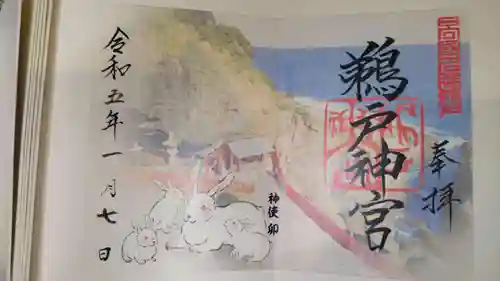 奉拝
鵜戸神宮
神使卯
令和五年一月七日